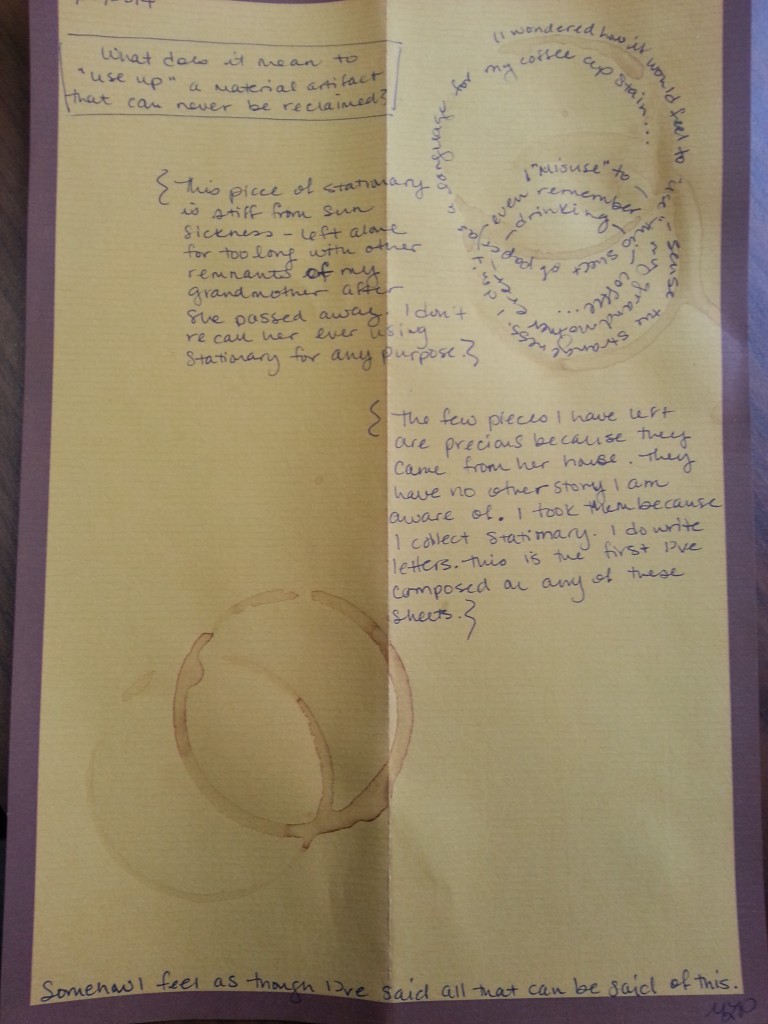 What does it mean to
"use up" a material artifact
that can never be reclaimed?
(I wondered how it would feel to "use" -
"misuse" this sheet of paper - as a language for my coffee cup stain...
I sense the strangeness. I don't even remember my grandmother drinking coffee...
{This piece of stationary
is stiff from sun
sickness - left alone
for too long with other
remnants of my
grandmother after
she passed away. I don't
recall her ever using
stationary for any purpose.}
{The few pieces I have left
are precious because they
came from her house. They
have no other story I am
aware of. I took them because
I collect stationary. I do write
letters. This is the first I've
composed on any of these
sheets.}
Somehow I feel as though I've said all that can be said of this.